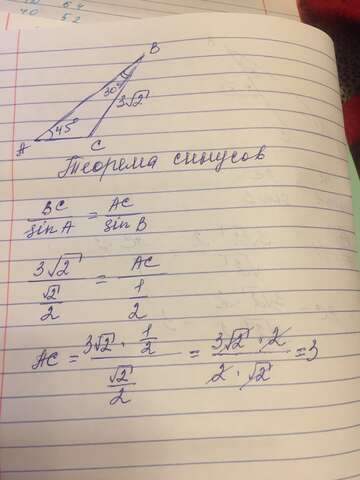 40 52
B
30°
3√2
45°
A
C
Теорема синусов
BC/sin A = AC/sin B
3√2/(√2/2) = AC/(1/2)
AC = (3√2 · 1/2)/(√2/2) = (3√2 · 2)/(2 · √2) = 3